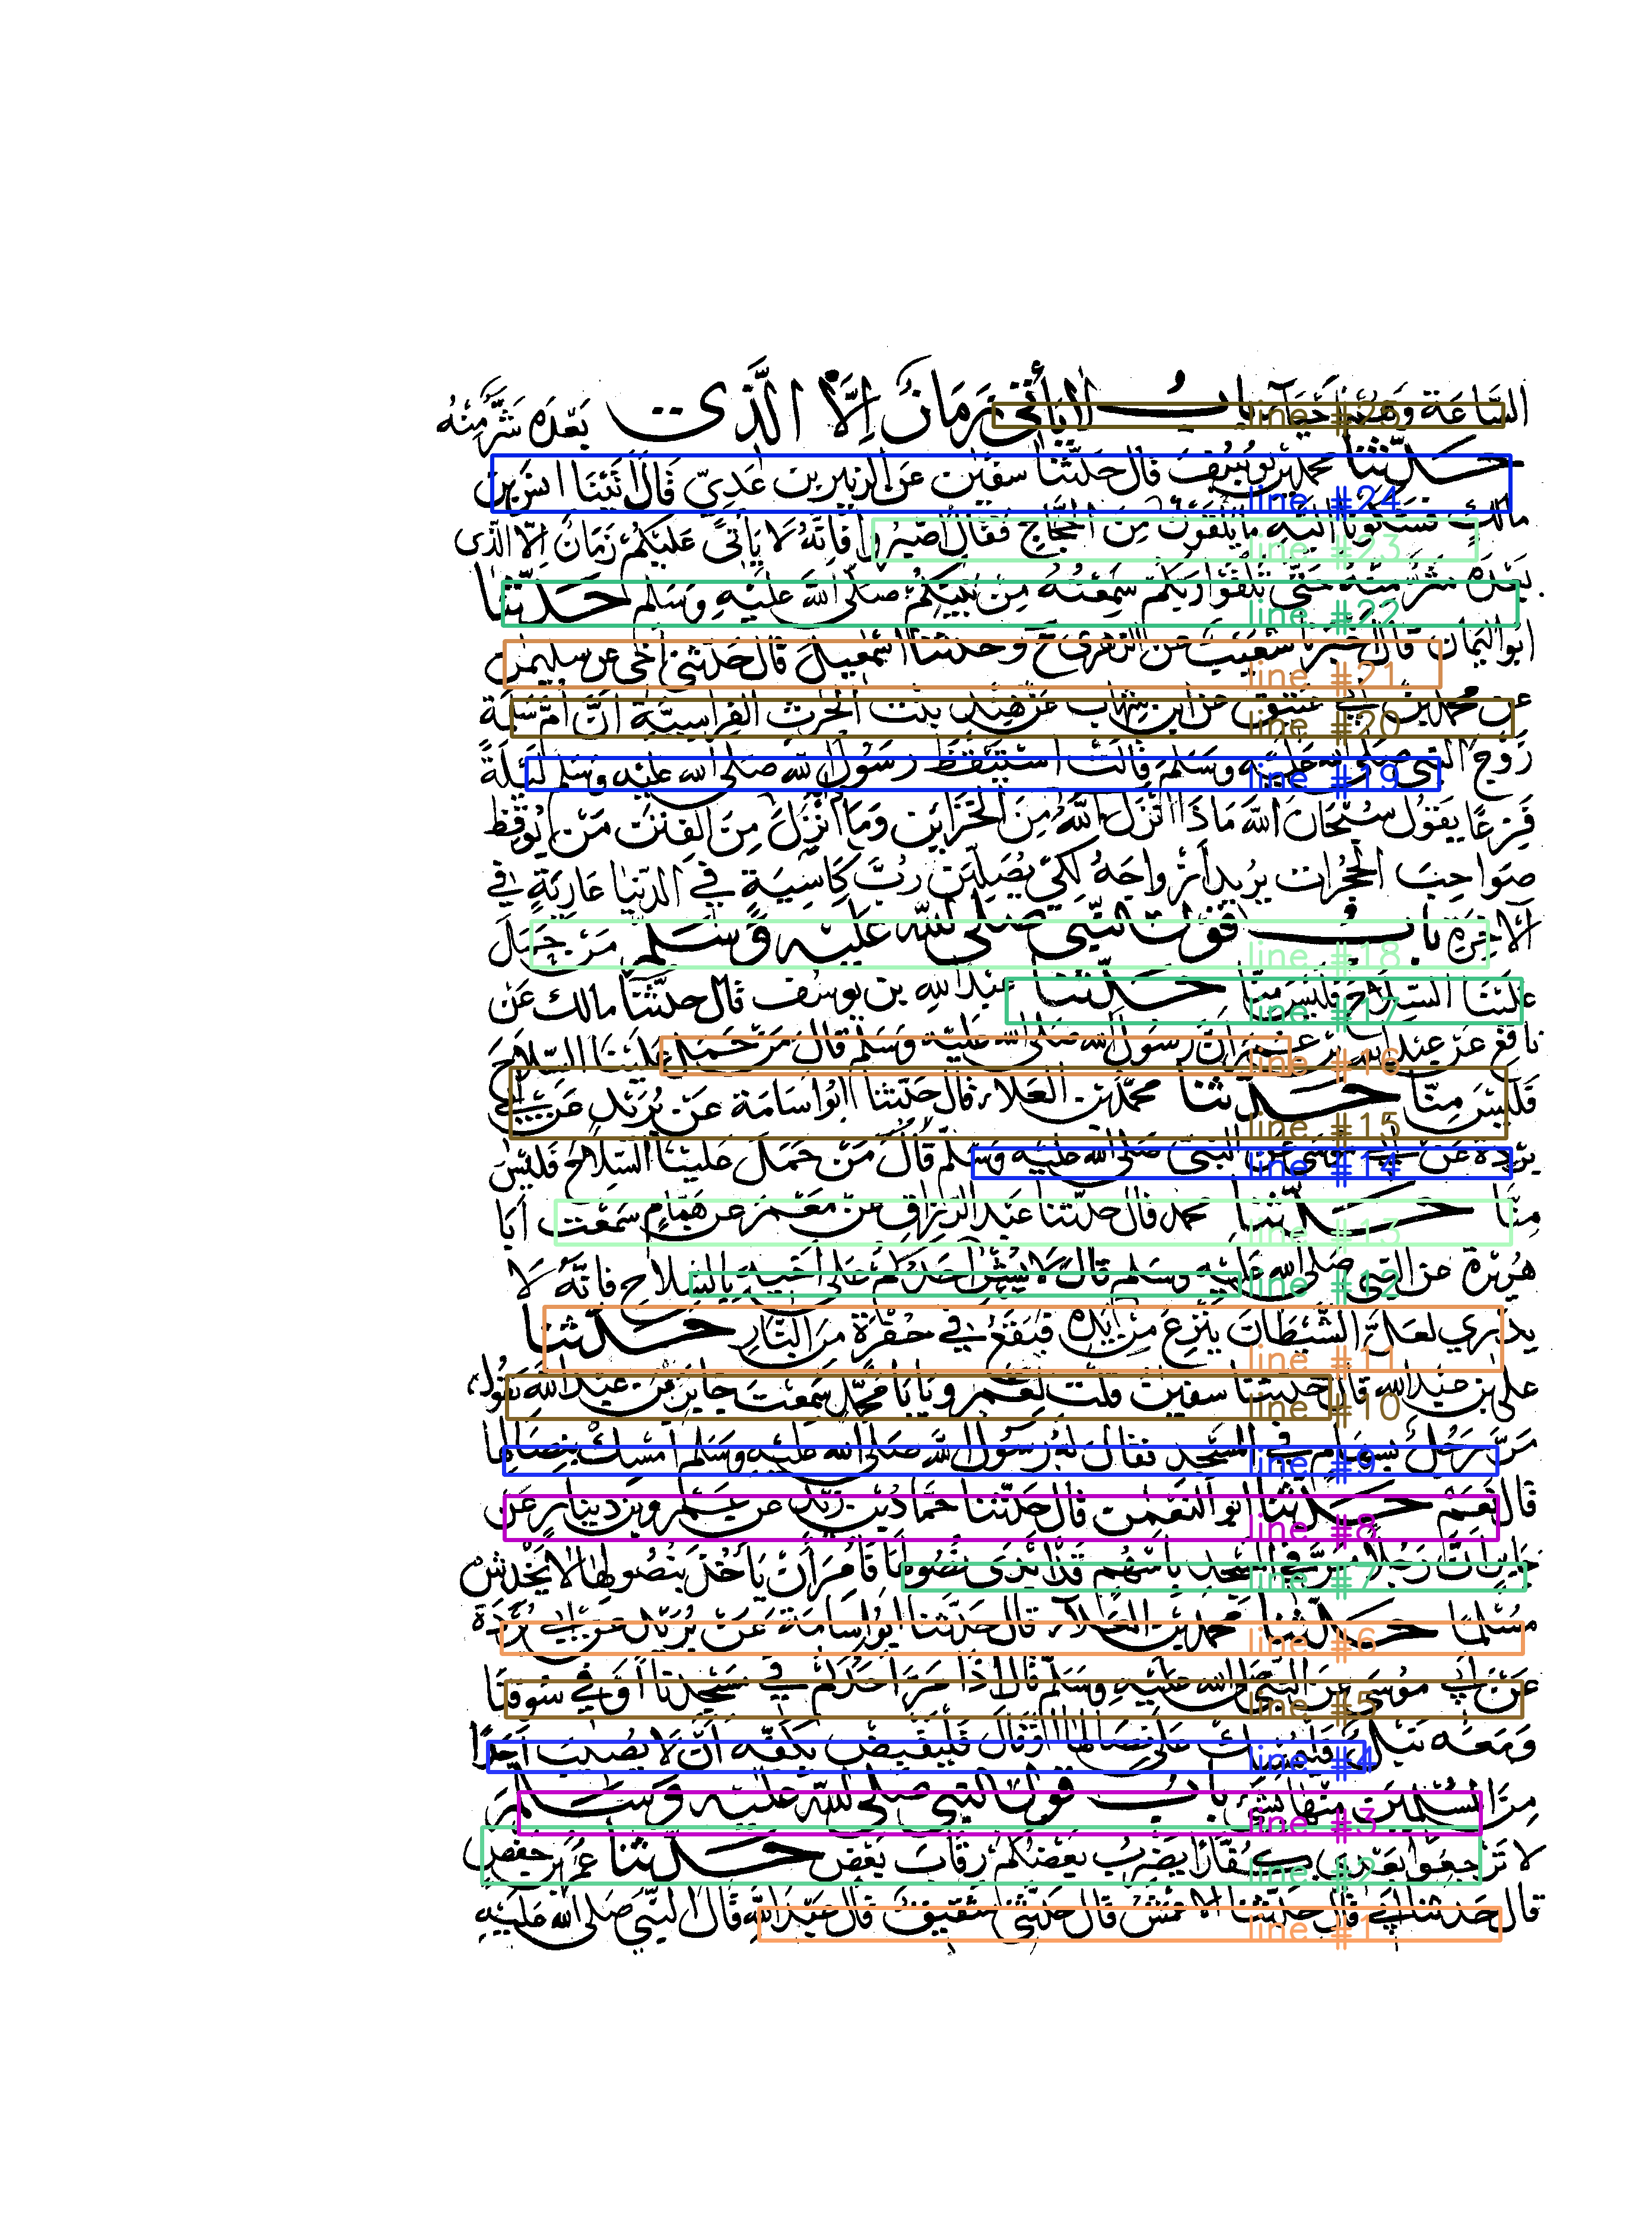 الساعة وهـ أحيا باب لا يأتي زمان إلا الذي بعده شر منه
حدثنا محمد بن يوسف قال حدثنا سفين عن الزبير بن عدي قال أتينا انس بن
مالك فشكونا اليه ما يلقون من الحجاج فقال اصبروا فانه لا يأتي عليكم زمان الا الذي
بعده شر منه حتى تلقوا ربكم سمعته من نبيكم صلى الله عليه وسلم حدثنا
ابو اليمان قال اخبرنا شعيب عن الزهري ح وحدثنا اسمعيل قال حدثني أخي عن سليمن
عن محمد بن أبي عتيق عن ابن شهاب عن هند بنت الحرث الفراسية ان ام سلمة
زوج النبي صلى الله عليه وسلم قالت استيقظ رسول الله صلى الله عليه وسلم ليلة
فزعا يقول سبحان الله ماذا أنزل الله من الخزاين وما أنزل من الفتن من يوقظ
صواحب الحجرات يريد أزواجه لكي يصلين رب كاسية في الدنيا عارية في
الآخرة باب قول النبي صلى الله عليه وسلم من حمل
علينا السلاح فليس منا حدثنا عبد الله بن يوسف قال حدثنا مالك عن
نافع عن عبد الله بن عمر ان رسول الله صلى الله عليه وسلم قال من حمل علينا السلاح
فليس منا حدثنا محمد بن العلاء قال حدثنا ابو اسامة عن بريد عن أبي
بردة عن أبي موسى عن النبي صلى الله عليه وسلم قال من حمل علينا السلاح فليس
منا حدثنا محمد قال حدثنا عبد الرزاق عن معمر عن همام سمعت ابا
هريرة عن النبي صلى الله عليه وسلم قال لا يشير أحدكم على أخيه بالسلاح فانه لا
يدري لعل الشيطان ينزع من يده فيقع في حفرة من النار حدثنا
علي بن عبد الله قال حدثنا سفين قلت لعمرو يا با محمد سمعت جابر بن عبد الله يقول
مر رجل بسهام في المسجد فقال له رسول الله صلى الله عليه وسلم امسك بنصالها
قال نعم حدثنا ابو النعمن قال حدثنا حماد بن زيد عن عمرو بن دينار عن
جابر ان رجلا مر في المسجد باسهم قد ابدى نصولها فأمر أن يأخذ بنصولها لا يخدش
مسلما حدثنا محمد بن العلآء قال حدثنا ابو اسامة عن بريد عن أبي بردة
عن أبي موسى عن النبي صلى الله عليه وسلم قال اذا مر احدكم في مسجدنا أو في سوقنا
ومعه نبل فليمسك على نصالها او قال فليقبض بكفه أن لا يصيب أحدا
من المسلمين منها بشئ باب قول النبي صلى الله عليه وسلم
لا ترجعوا بعدي كفارا يضرب بعضكم رقاب بعض حدثنا عمر بن حفص
قال حدثنا أبي قال حدثنا الاعمش قال حدثني شقيق قال عبد الله قال النبي صلى الله عليه